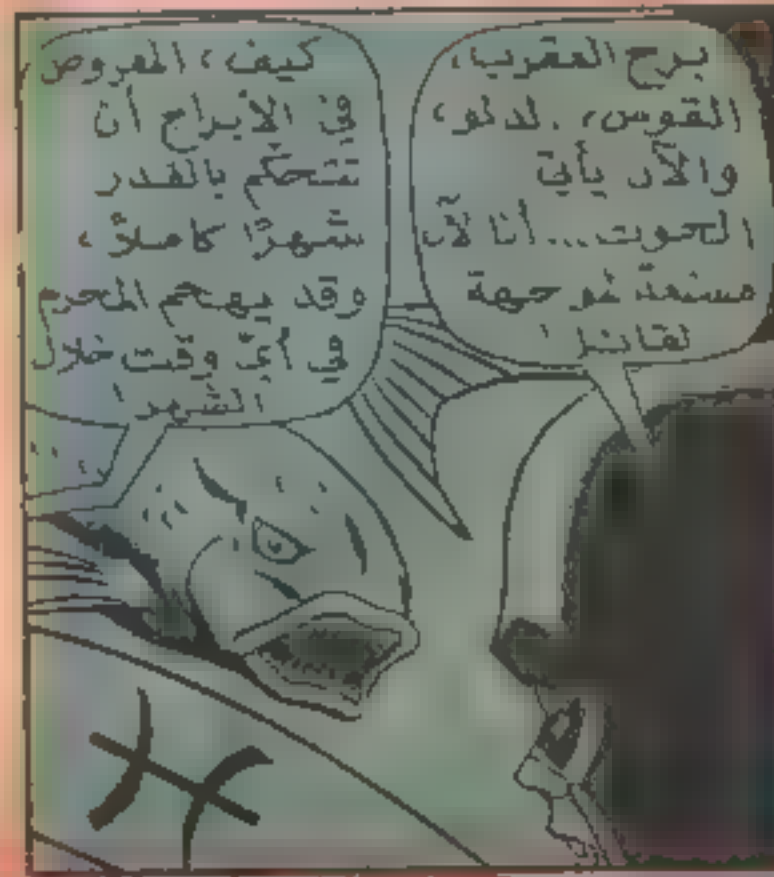 برج العقرب،
القوس، .لدلو،
والآن يأتي
الحوت... أنا لآن
مستعدة لمو جهة
لقاتل !
كيف، المفروض
في الأبراج أن
تتحكّم بالقدر
شهرًا كاملاً،
وقد يهجم المجرم
في أيّ وقت خلال
الشهر !